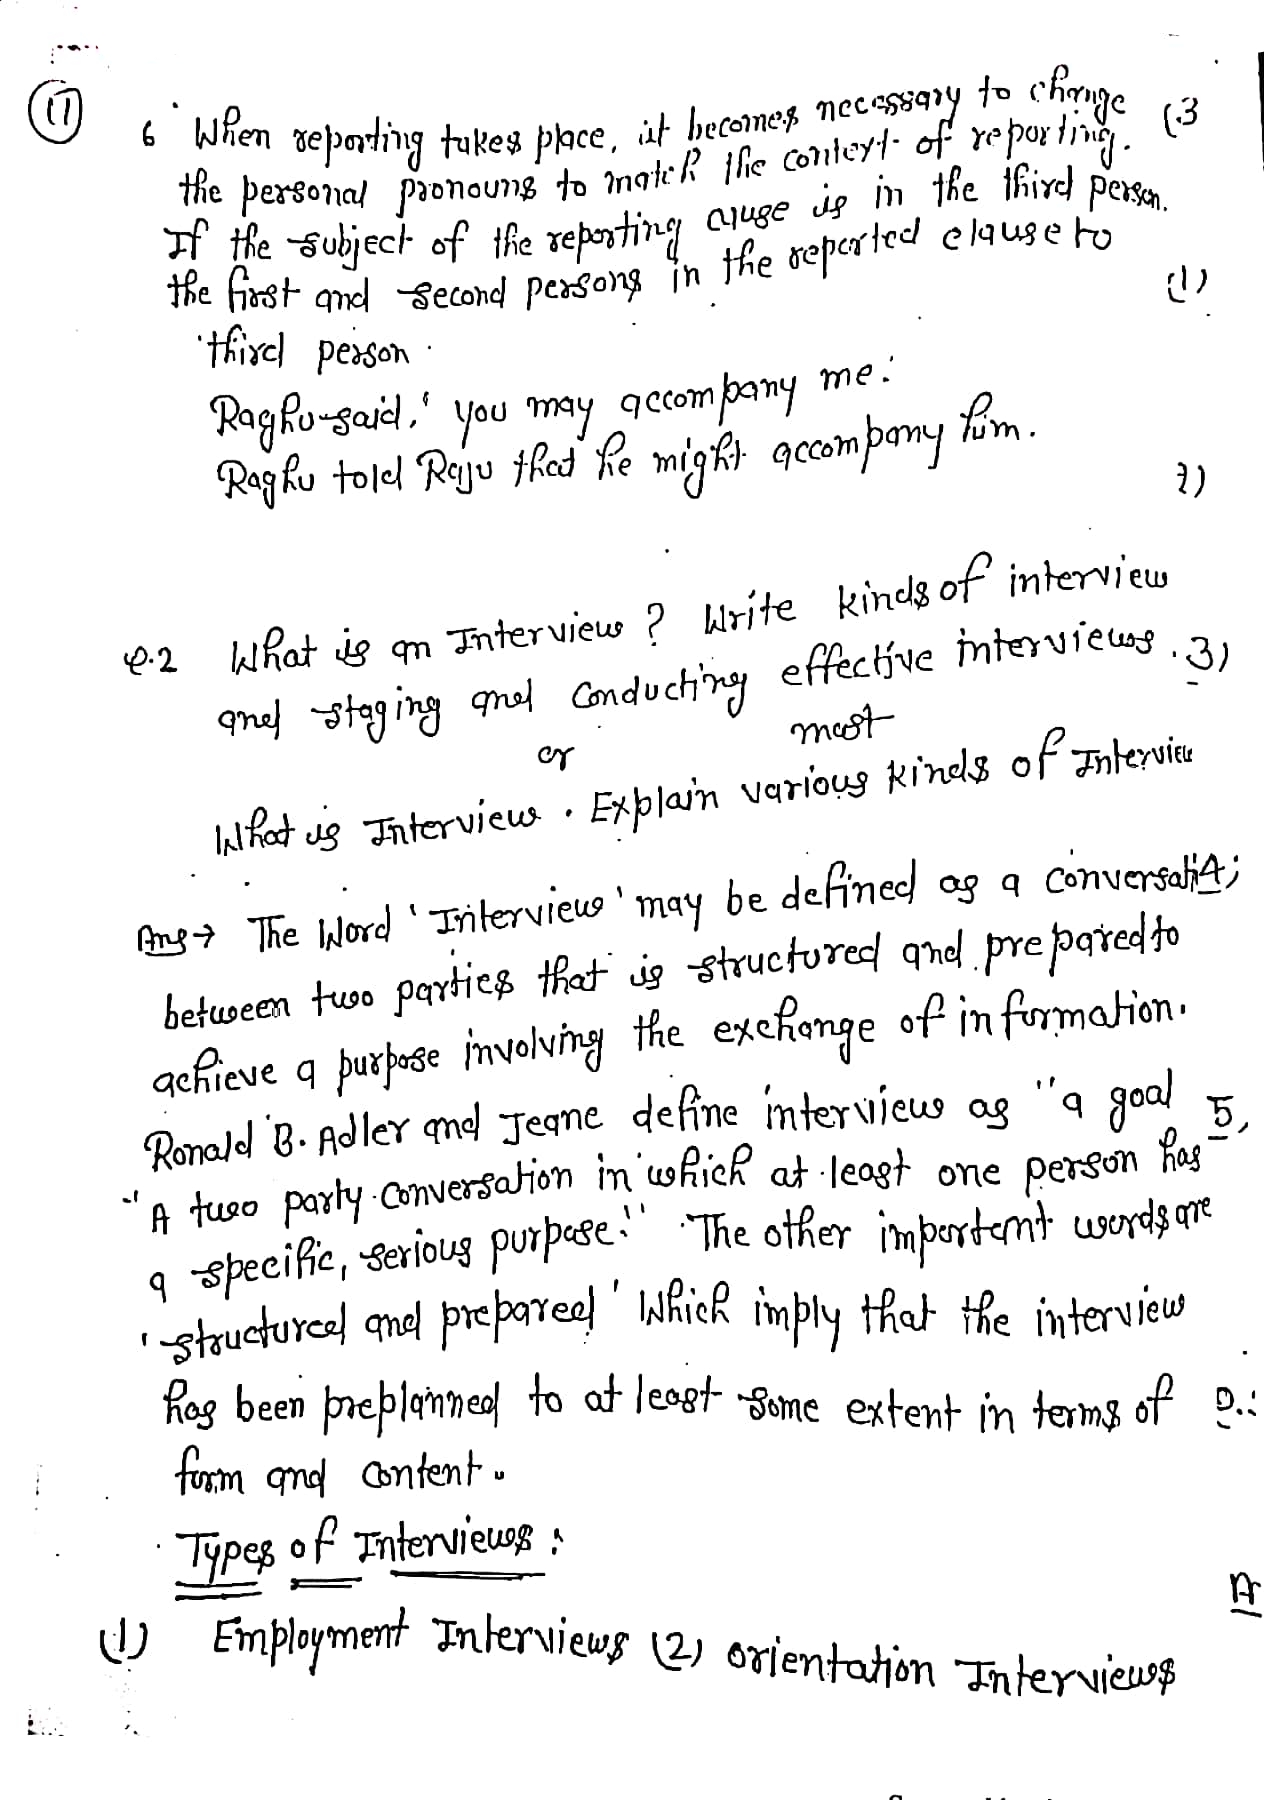 (17)
6 When reporting takes place, it becomes necessary to change
the personal pronouns to match the context of reporting.
If the subject of the reporting cluse is in the third person.
the first and second persons in the reported clause to
third person.
Raghu said, 'you may accompany me.'
Raghu told Raju that he might accompany him.
Q.2 What is an Interview? Write kinds of interview
and staging and conducting effective interviews.
or most
What is Interview. Explain various kinds of Interview
Ans→ The Word 'Interview' may be defined as a conversati
between two parties that is structured and prepared to
achieve a purpose involving the exchange of information.
Ronald B. Adler and Jeane define interview as "a goal
"A two party conversation in which at least one person has
a specific, serious purpose." The other important words are
'structured and prepared' Which imply that the interview
has been preplanned to at least some extent in terms of
form and content.
Types of Interviews:
(1) Employment Interviews (2) orientation Interviews
(3
(1)
2)
3)
4;
5,
D.:
A